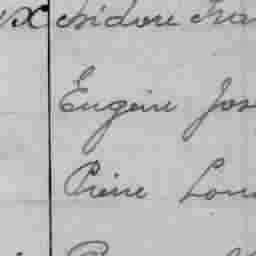 x Isidore Fra
Eugène Jos
Pierre Lou